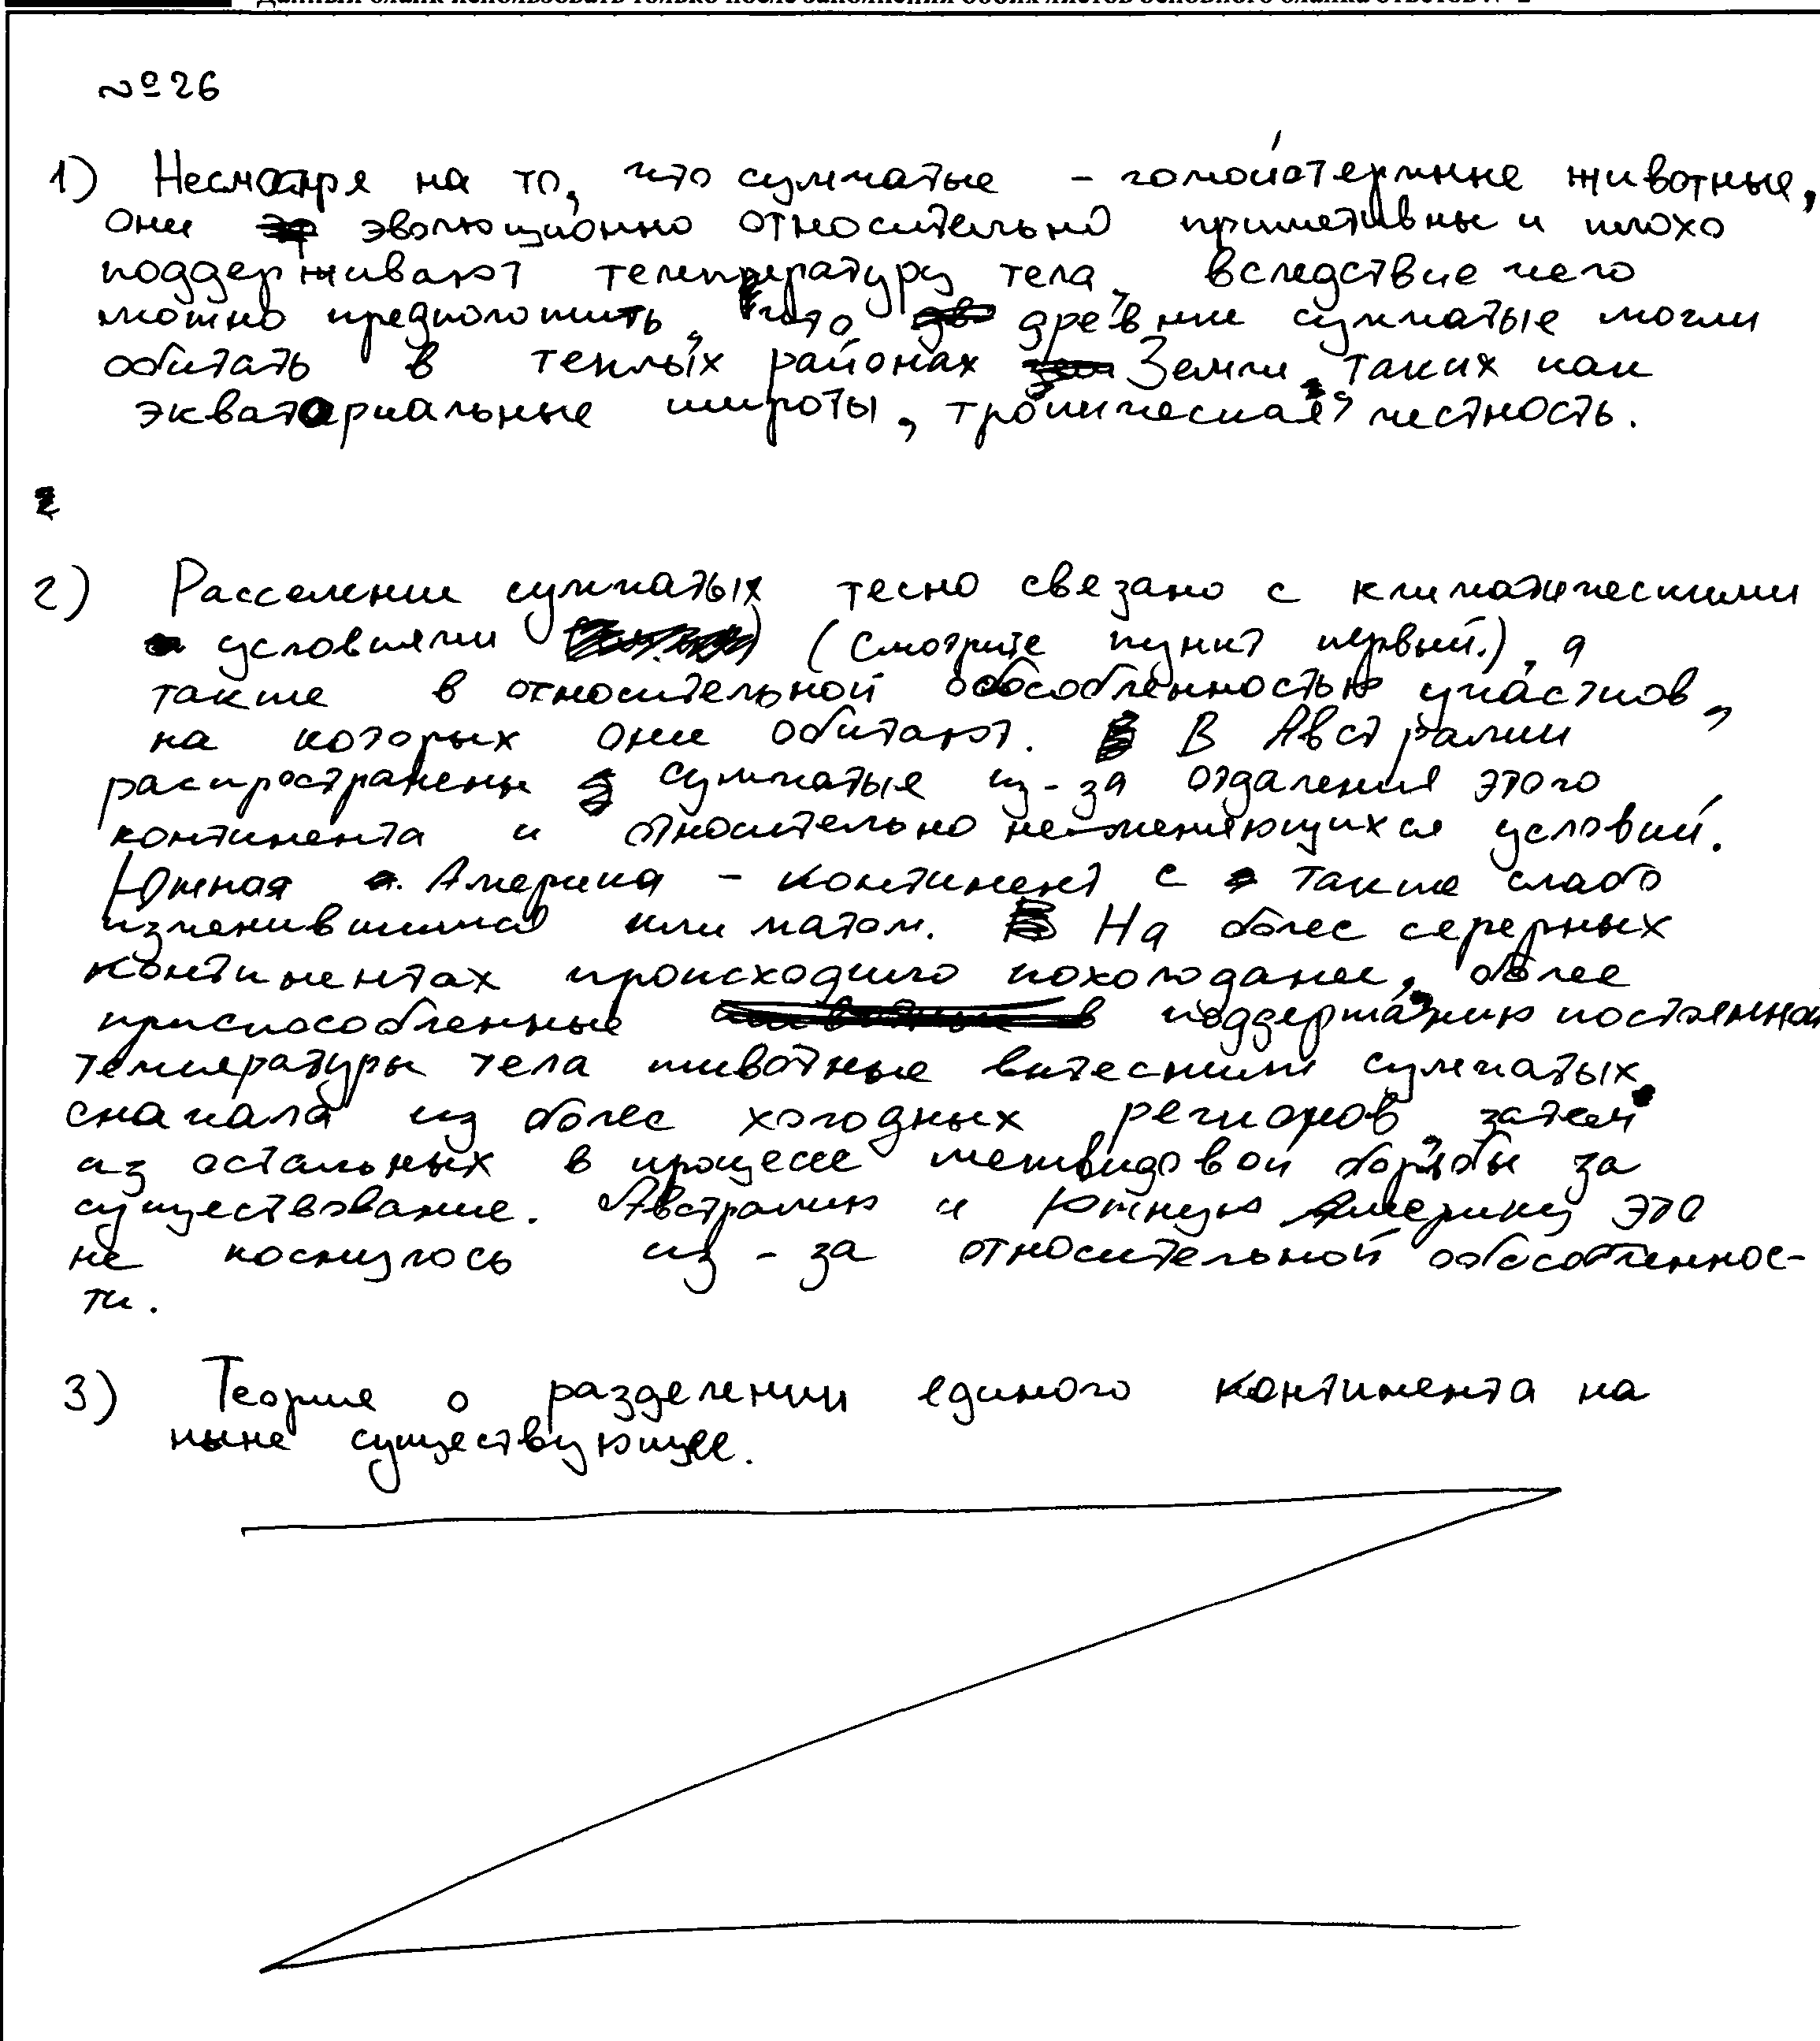 №26
1) Несмотря на то, что сумчатые - гомойотермные животные,
они эволюционно относительно приметивны и плохо
поддерживают температуру тела, вследствие чего
можно предположить, что древние сумчатые могли
обитать в теплых районах Земли, таких как
экваториальные широты, тропическая местность.
2) Расселение сумчатых тесно связано с климатическими
условиями (смотрите пункт первый.), а
также в относительной обособленностью участков,
на которых они обитают. В Австралии
распространены сумчатые из-за отдаления этого
континента и относительно неменяющихся условий.
Южная Америка - континент с также слабо
изменившимся климатом. На более северных
континентах происходило похолодание, более
приспособленные поддержанию постоянной
температуры тела животные вытеснили сумчатых
сначала из более холодных регионов, затем
из остальных в процессе межвидовой борьбы за
существование. Австралию и Южную Америку это
не коснулось из-за относительной обособленнос-
ти.
3) Теория о разделении единого континента на
ныне существующее.